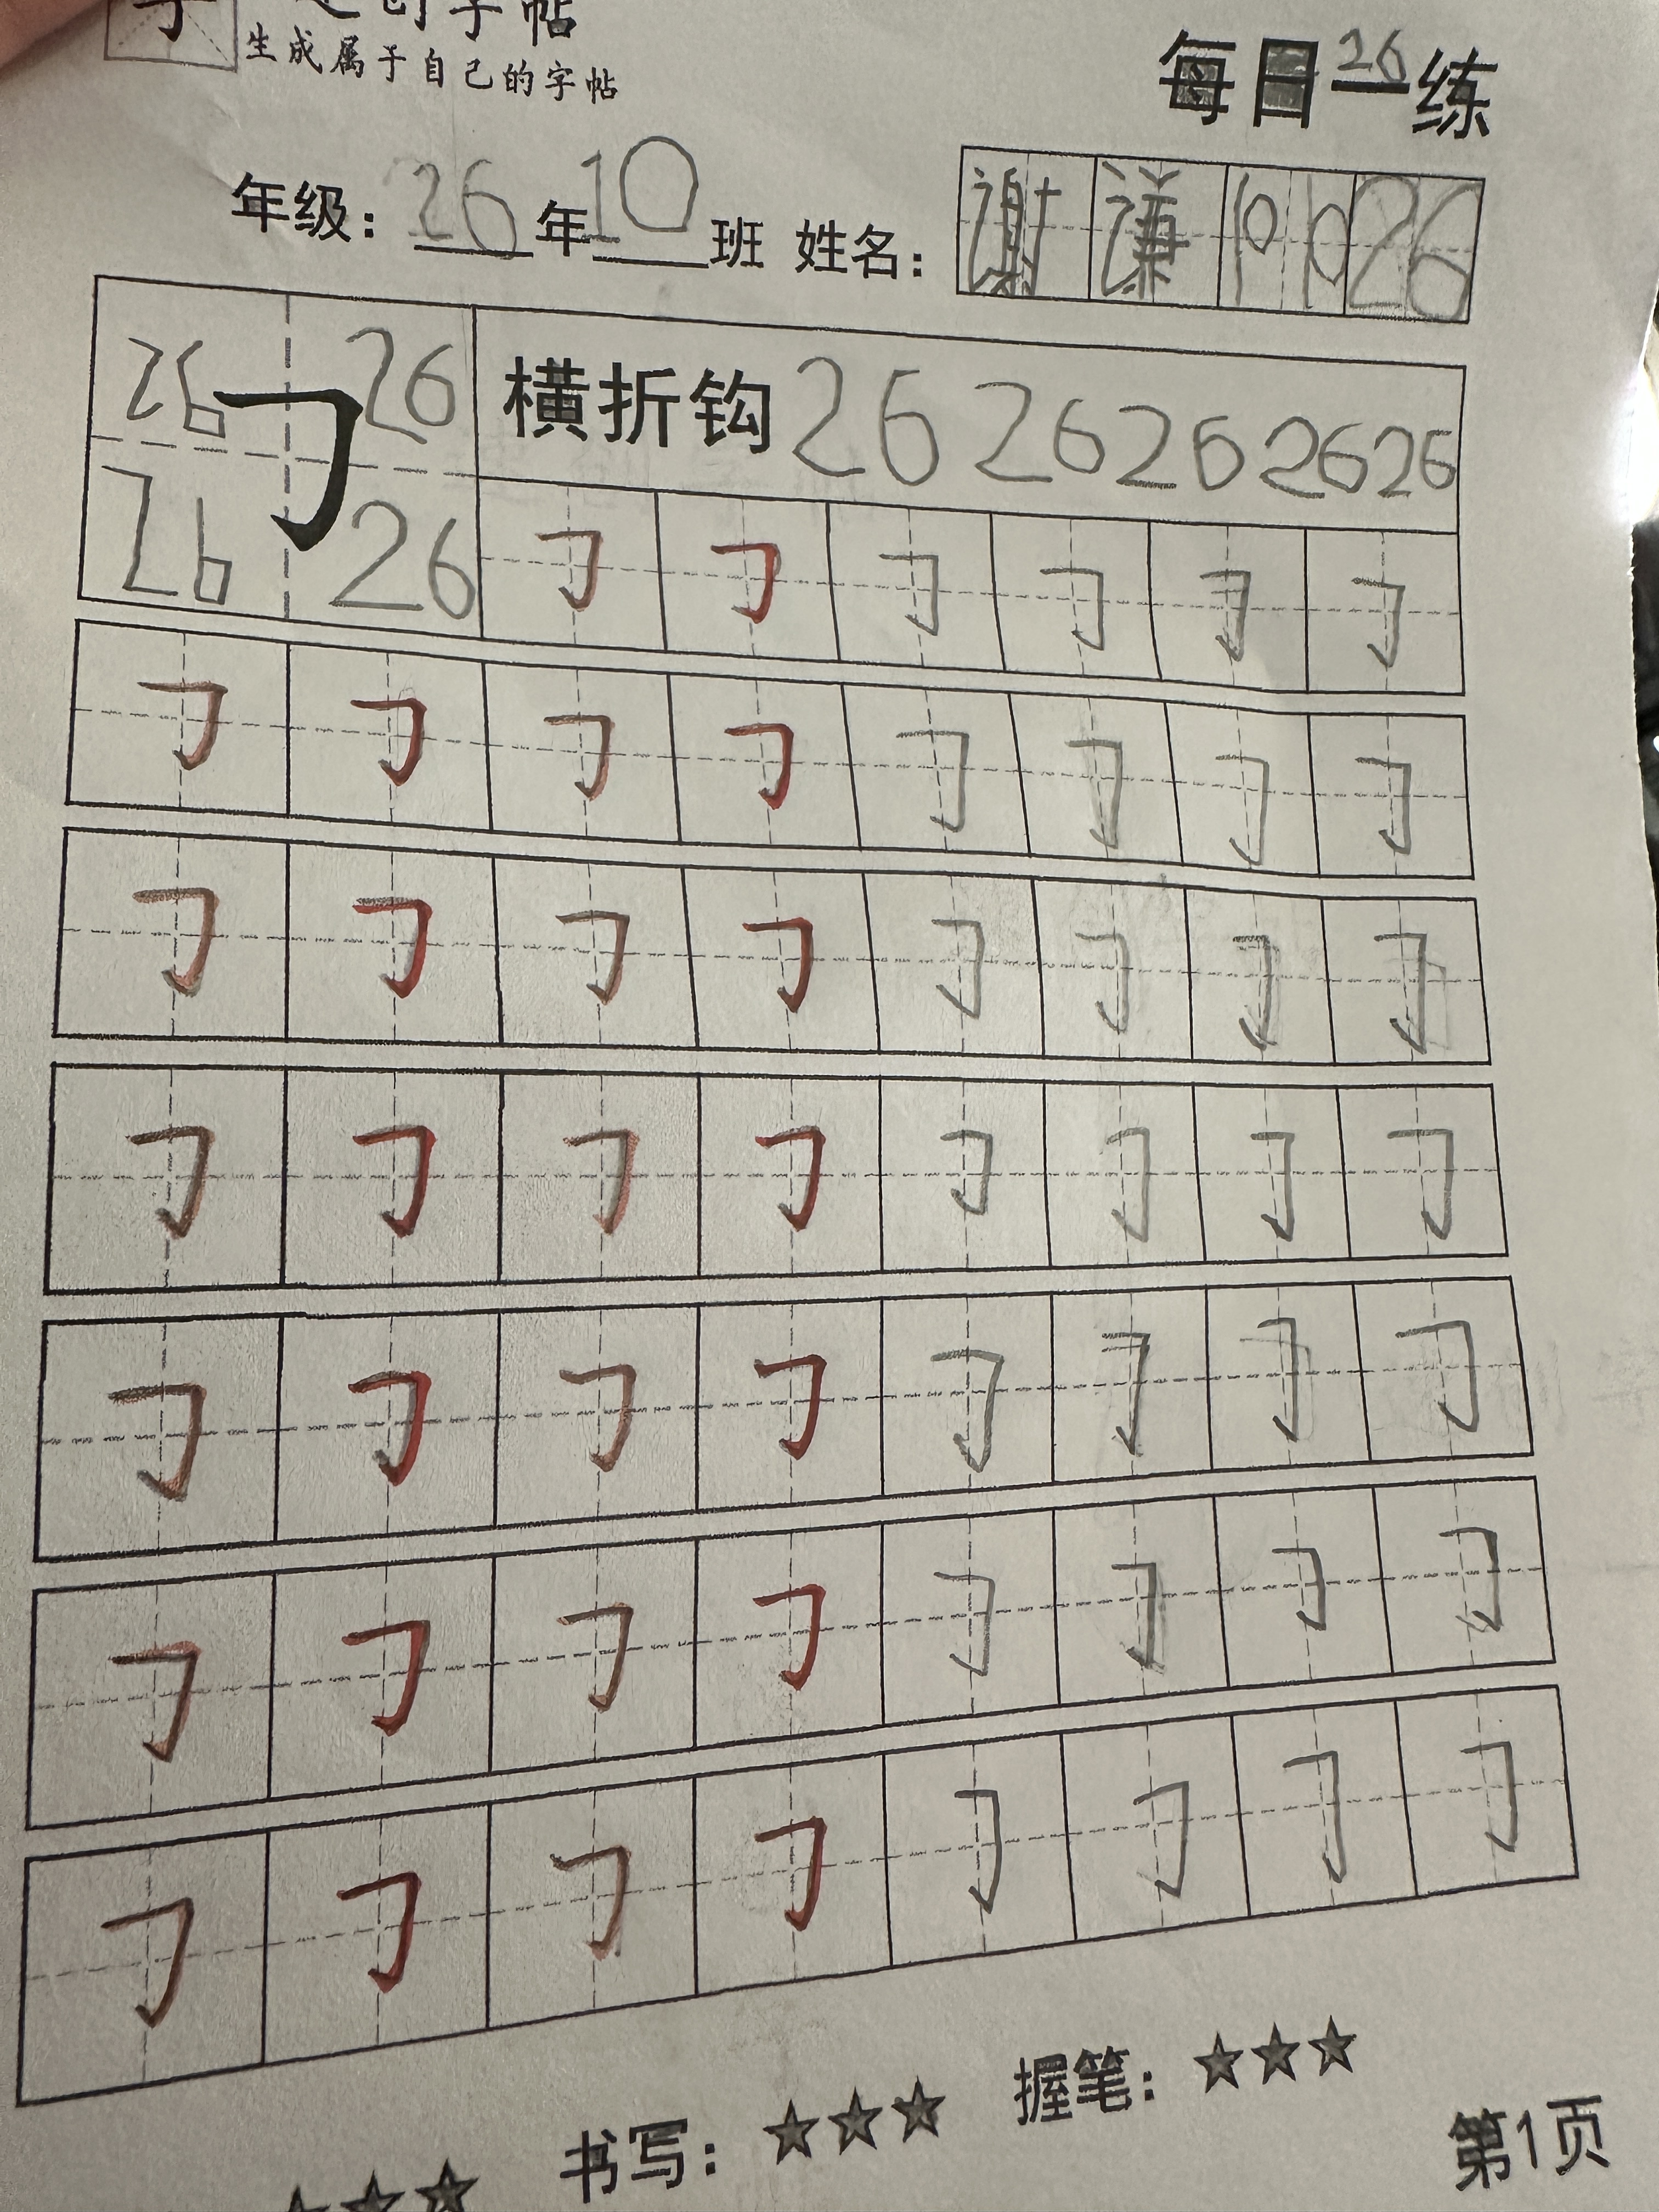 的字帖
生成属于自己的字帖
每日26一练
年级：26年10班 姓名：谢谦 26
26 26
26 26
横折钩 26 26 26 26 26
㇆ ㇆ ㇆ ㇆ ㇆ ㇆
㇆ ㇆ ㇆ ㇆ ㇆ ㇆ ㇆ ㇆
㇆ ㇆ ㇆ ㇆ ㇆ ㇆ ㇆ ㇆
㇆ ㇆ ㇆ ㇆ ㇆ ㇆ ㇆ ㇆
㇆ ㇆ ㇆ ㇆ ㇆ ㇆ ㇆ ㇆
㇆ ㇆ ㇆ ㇆ ㇆ ㇆ ㇆ ㇆
㇆ ㇆ ㇆ ㇆ ㇆ ㇆ ㇆ ㇆
★★★ 书写：★★★ 握笔：★★★
第1页